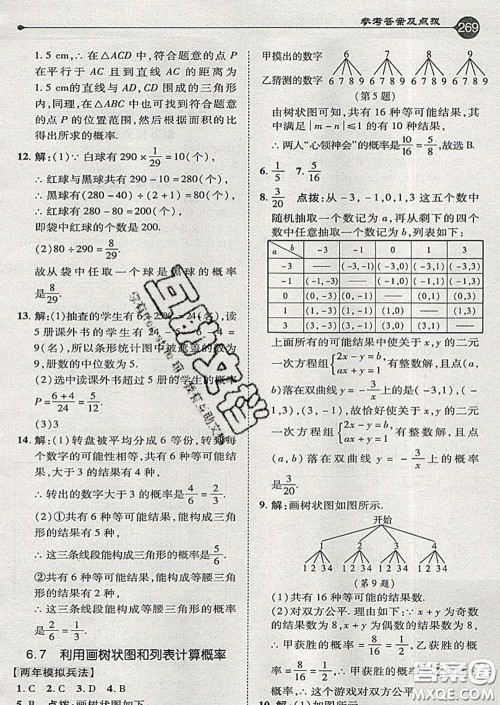 参考答案及点拨
269
1.5 cm,∴在△ACD中,符合题意的点P
在平行于AC且到直线AC的距离为
1.5 cm的直线与AD,CD围成的三角形
内,同理,在△ABC中也可找到符合题意
的点P的位置范围,然后根据面积的比
得出所求的概率.
12. 解:(1)∵白球有290×1/29=10(个),
∴红球与黑球共有290-10=280(个),
∴黑球有(280-40)÷(2+1)=80(个),
∴红球有280-80=200(个),
即袋中红球的个数是200.
(2)80÷290=8/29.
故从袋中任取一个球是黑球的概率
是8/29.
13. 解:(1)抽查的学生有6÷
24(名),读
5册课外书的学生有24-
9(名),所以条形统计图中被遮盖的数为
9,册数的中位数为5.
(2)选中读课外书超过5册的学生的概率
P=(6+4)/24=5/12.
(3)3
14. 解:(1)转盘被平均分成6等份,转到每
个数字的可能性相等,共有6种可能结
果,大于3的结果有4种,
∴转出的数字大于3的概率是4/6=2/3.
(2)①共有6种等可能结果,能构成三角
形的结果有5种,
∴这三条线段能构成三角形的概率是5/6.
②共有6种等可能结果,能构成等腰三角
形的结果有2种,
∴这三条线段能构成等腰三角形的概率
是2/6=1/3.
6.7 利用画树状图和列表计算概率
[两年模拟兵法]
1. C 2. C 3. D 4. B
甲摸出的数字 6 7 8 9
乙猜测的数字 6789 6789 6789 6789
(第5题)
由树状图可知,共有16种等可能结果,其
中满足|m-n|≤1的有10种结果,
∴两人“心领神会”的概率是10/16=5/8,故选B.
6. 1/6 7. 5/16
8. 3/20 点拨:从-3,-1,0,1,3这五个数中
随机抽取一个数记为a,再从剩下的四个
数中任意抽取一个数记为b,列表如下:
a b -3 -1 0 1 3
-3 —— (-3,-1) (-3,0) (-3,1) (-3,3)
-1 (-1,-3) —— (-1,0) (-1,1) (-1,3)
0 (0,-3) (0,-1) —— (0,1) (0,3)
1 (1,-3) (1,-1) (1,0) —— (1,3)
3 (3,-3) (3,-1) (3,0) (3,1) ——
上面所有的可能结果中使关于x,y的二元
一次方程组{2x-y=b, ax+y=a,有整数解,且点(a,
b)落在双曲线y=-3/x上的是(-3,1),
故恰好使关于x,y的二元
一次方程组{2x-y=b, ax+y=a有整数解,且点
(a,b)落在双曲线y=-3/x上的概率是
3/20.
9. 解:画树状图如图所示.
开始
1 2 3 4
1234 1234 1234 1234
(第9题)
(1)共有16种可能的结果.
(2)对双方公平.理由:∵x+y为奇数的
情况有8种,x+y为偶数的情况有8种,
∴甲获胜的概率是8/16=1/2,乙获胜的概率
∴这个游戏对双方公平.
互助文档
答案圈
MXQE.COM